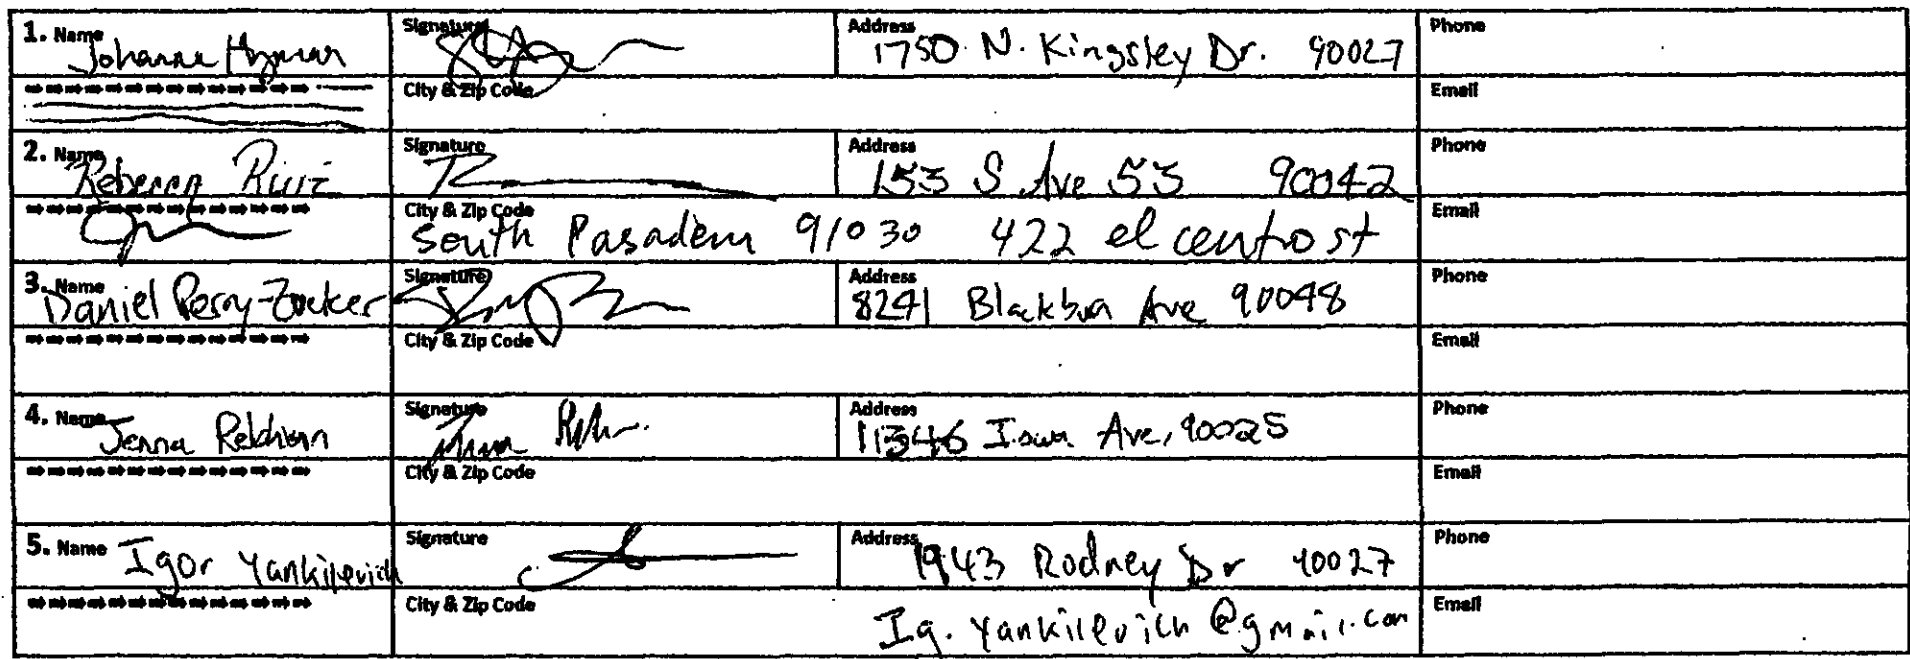 1. Name Johanna Hyman Signature Address 1750 N. Kingsley Dr. 90027 Phone
City & Zip Code Email
2. Name Rebecca Ruiz Signature Address 153 S Ave 53 90042 Phone
City & Zip Code South Pasadena 91030 422 el centro st Email
3. Name Daniel Perry-Zucker Signature Address 8241 Blackburn Ave 90048 Phone
City & Zip Code Email
4. Name Jenna Signature Address 11346 Iowa Ave, 90025 Phone
City & Zip Code Email
5. Name Igor Yankilevich Signature Address 1943 Rodney Dr 90027 Phone
City & Zip Code Ig.Yankilevich@gmail.com Email